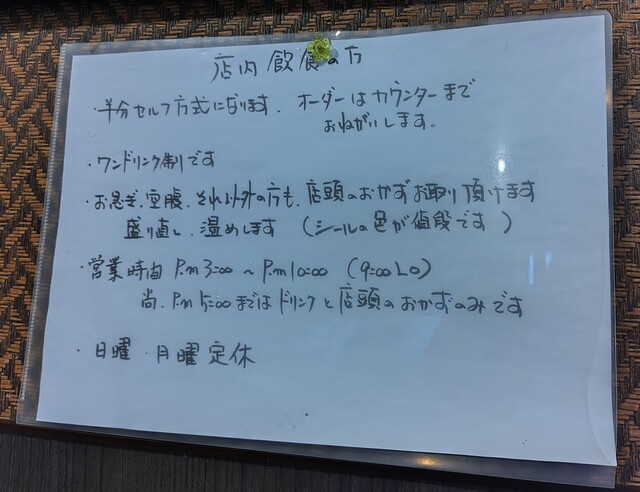 店内飲食の方
・半分セルフ方式になります. オーダーはカウンターまで
おねがいします。
・ワンドリンク制です
・お急ぎ、空腹、それ以外の方も、店頭のおかずお取り頂けます
盛り直し、温めします (シールの色が値段です)
・営業時間 P.m 3:00 ~ P.m 10:00 (9:00 LO)
尚、P.m 5:00までは ドリンクと店頭のおかずのみです
・日曜・月曜定休